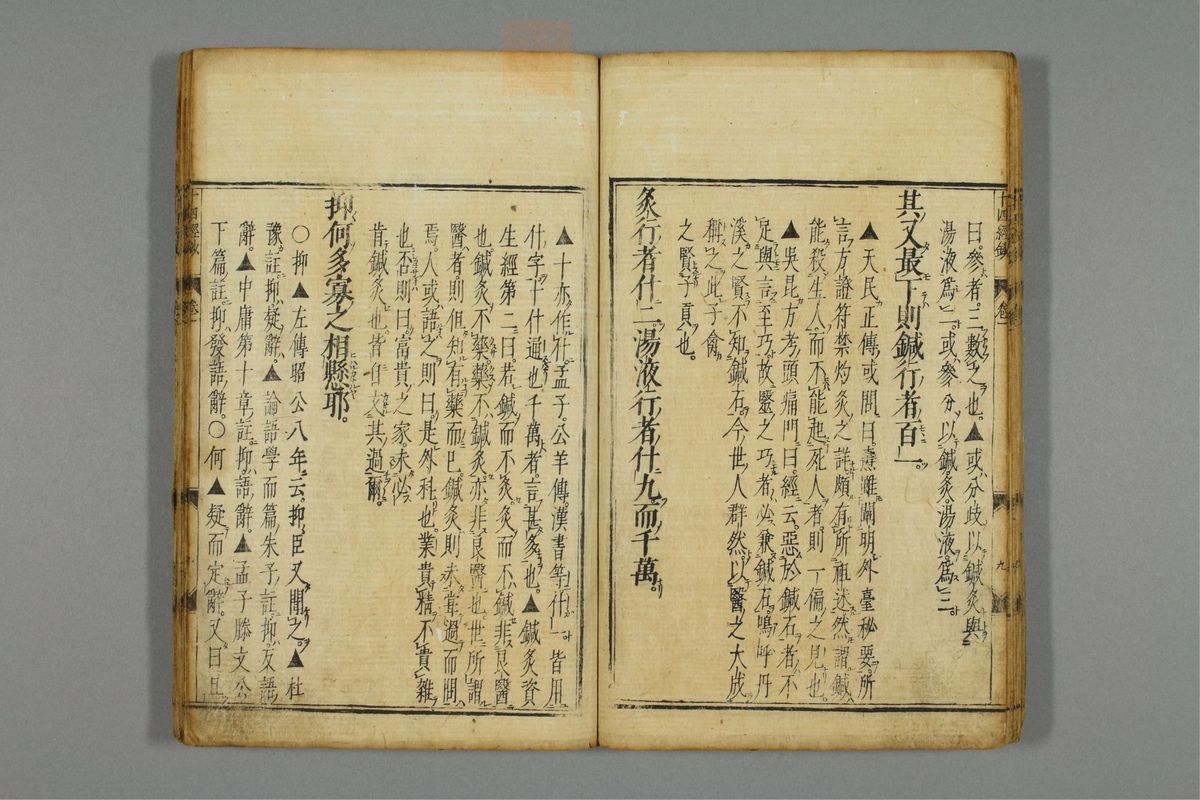 十四經鈔
卷一
九
曰參者三數之也▲或分岐以鍼灸與
湯液爲二或參分以鍼灸湯液爲三
其又最下則鍼行者百一
▲天民正傳或問曰燾雖闡明外臺秘要所
言方證符禁灼灸之詳頗有所祖述然謂鍼
能殺生人而不能起死人者則一偏之見也
▲吳昆方考頭痛門曰經云惡於鍼石者不
足與言至巧故醫之巧者必兼鍼石嗚呼丹
溪之賢不知鍼石今世人群然以醫之大成
稱之此子禽
之賢子貢也
灸行者什二湯液行者什九而千萬
▲十亦作什孟子公羊傳漢書等什一皆用
什字十什通也千萬者言甚多也▲鍼灸資
生經第二曰若鍼而不灸灸而不鍼非良醫
也鍼灸不藥藥不鍼灸亦非良醫也世所謂
醫者則但知有藥而已鍼灸則未甞過而問
焉人或語之則曰是外科也業貴精不貴雜
也否則曰富貴之家未必
肯鍼灸也皆自文其過爾
抑何多寡之相懸耶
〇抑▲左傳昭公八年云抑臣又聞之▲杜
豫註抑疑辭▲論語學而篇朱子註抑反語
辭▲中庸第十章註抑語辭▲孟子滕文公
下篇註抑發語辭〇何▲疑而定辭又曰且
十四經鈔
卷一